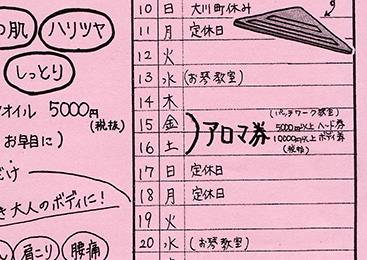 の肌
ハリツヤ
しっとり
オイル 5000円
(税抜)
お早目に)
だけ
き大人のボディに!
肩こり
腰痛
10 日 大川町休み
11 月 定休日
12 火
13 水 (お琴教室)
14 木
15 金
16 土
アロマ券
(パッチワーク教室)
5000円以上ハード券
10000円以上ボディ券
(税抜)
17 日 定休日
18 月 定休日
19 火
20 水 (お琴教室)